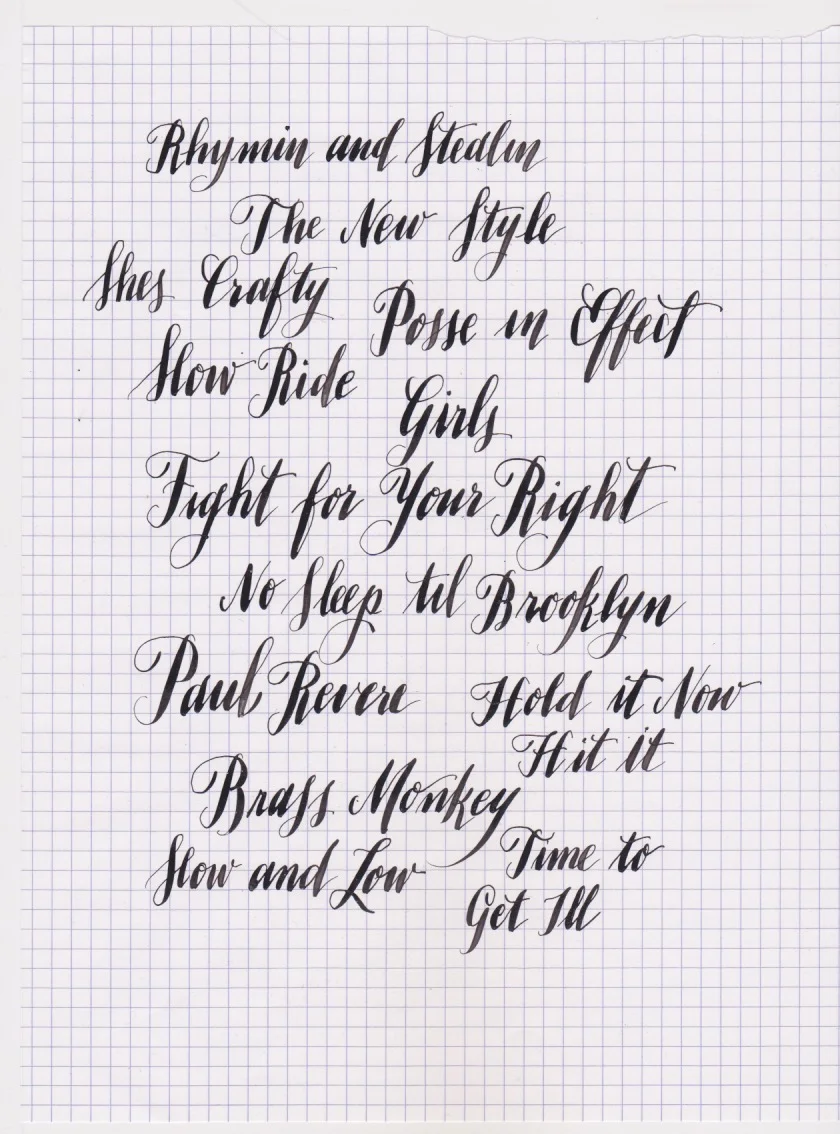 Rhymin and Stealin
The New Style
Shes Crafty
Posse in Effect
Slow Ride
Girls
Fight for Your Right
No Sleep til Brooklyn
Paul Revere
Hold it Now
Hit it
Brass Monkey
Slow and Low
Time to
Get Ill